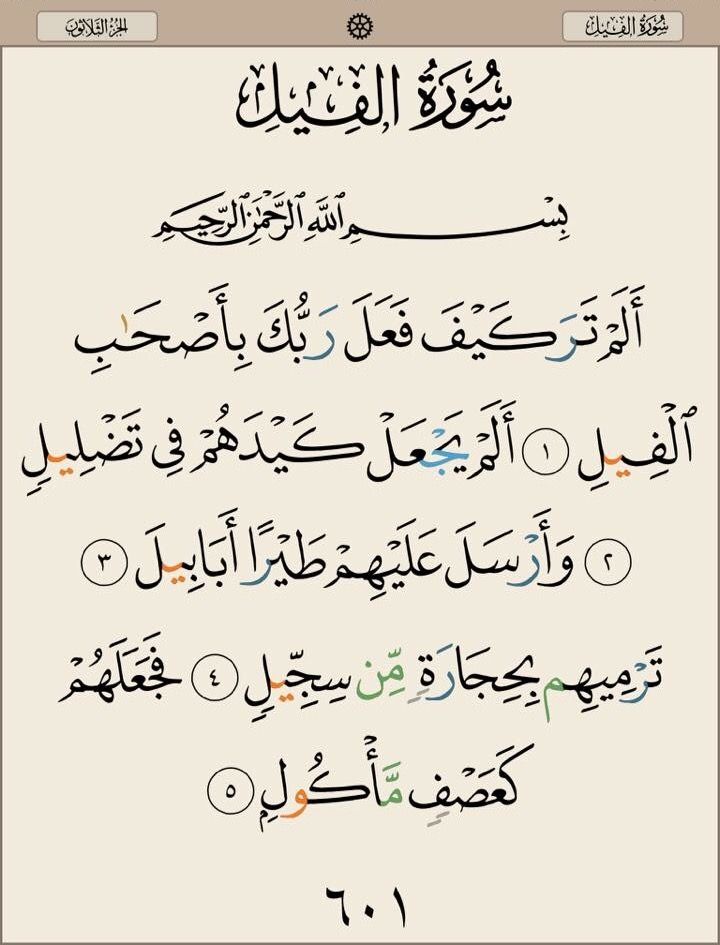 سُورَةُ الفِيلِ
الجُزءُ الثَّلَاثُونَ
سُورَةُ الفِيلِ
بِسْمِ ٱللَّهِ ٱلرَّحْمَٰنِ ٱلرَّحِيمِ
أَلَمْ تَرَ كَيْفَ فَعَلَ رَبُّكَ بِأَصْحَٰبِ
ٱلْفِيلِ ١ أَلَمْ يَجْعَلْ كَيْدَهُمْ فِى تَضْلِيلٍ
٢ وَأَرْسَلَ عَلَيْهِمْ طَيْرًا أَبَابِيلَ ٣
تَرْمِيهِم بِحِجَارَةٍ مِّن سِجِّيلٍ ٤ فَجَعَلَهُمْ
كَعَصْفٍ مَّأْكُولٍۭ ٥
٦٠١